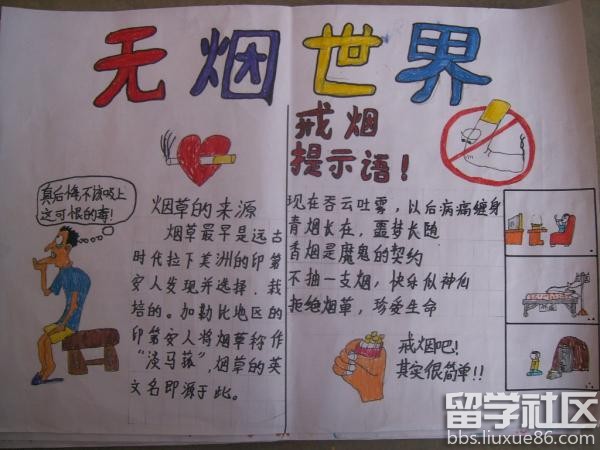 无烟世界
戒烟
提示语！
真后悔不该吸上
这可恨的毒！
烟草的来源
烟草最早是远古
时代拉丁美洲的印第
安人发现并选择、栽
培的。加勒比地区的
印第安人将烟草称作
“淡马菰”，烟草的英
文名即源于此。
现在吞云吐雾，以后病痛缠身
青烟长在，噩梦长随
香烟是魔鬼的契约
不抽一支烟，快乐似神仙
拒绝烟草，珍爱生命
戒烟吧！
其实很简单！！
留学社区
bbs.liuxue86.com